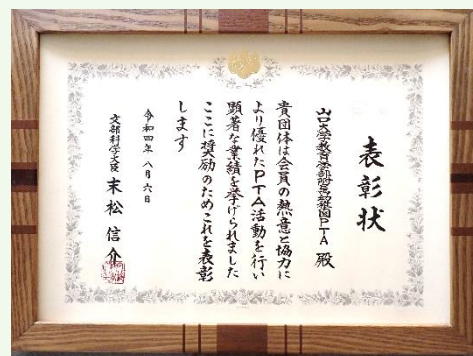 表彰状
山口大学教育学部附属幼稚園PTA 殿
貴団体は会員の熱意と協力に
より優れたPTA活動を行い
顕著な業績を挙げられました
ここに奨励のためこれを表彰
します
令和四年八月六日
文部科学大臣 末松信介